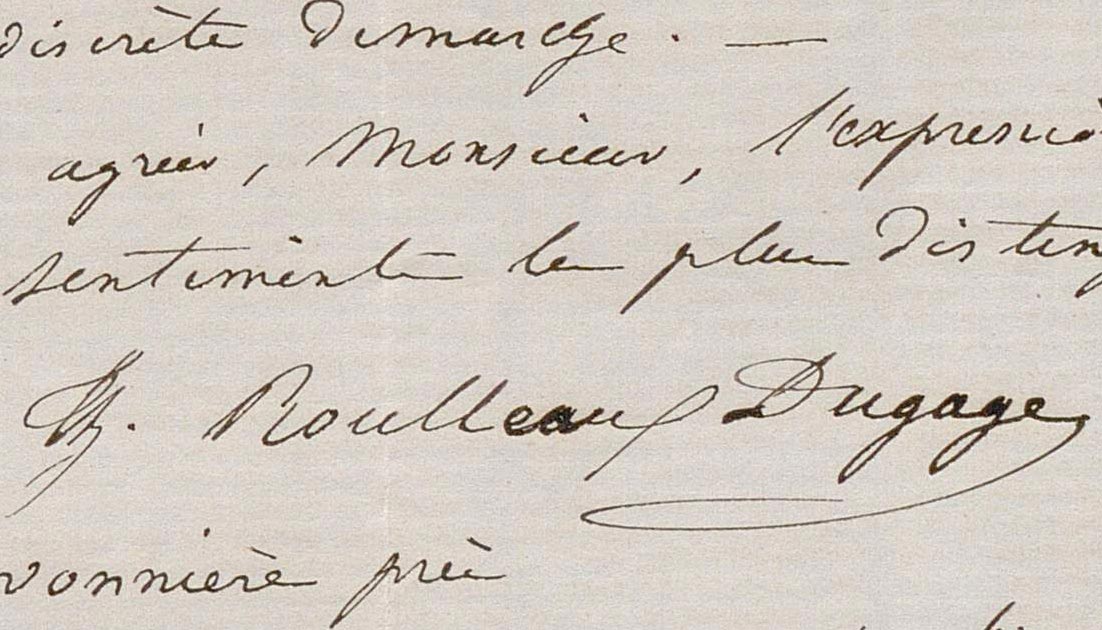 discrète demarche. —
agréer, Monsieur, l'expressio
sentiments les plus disting
Roulleaux Dugage
vonnière près